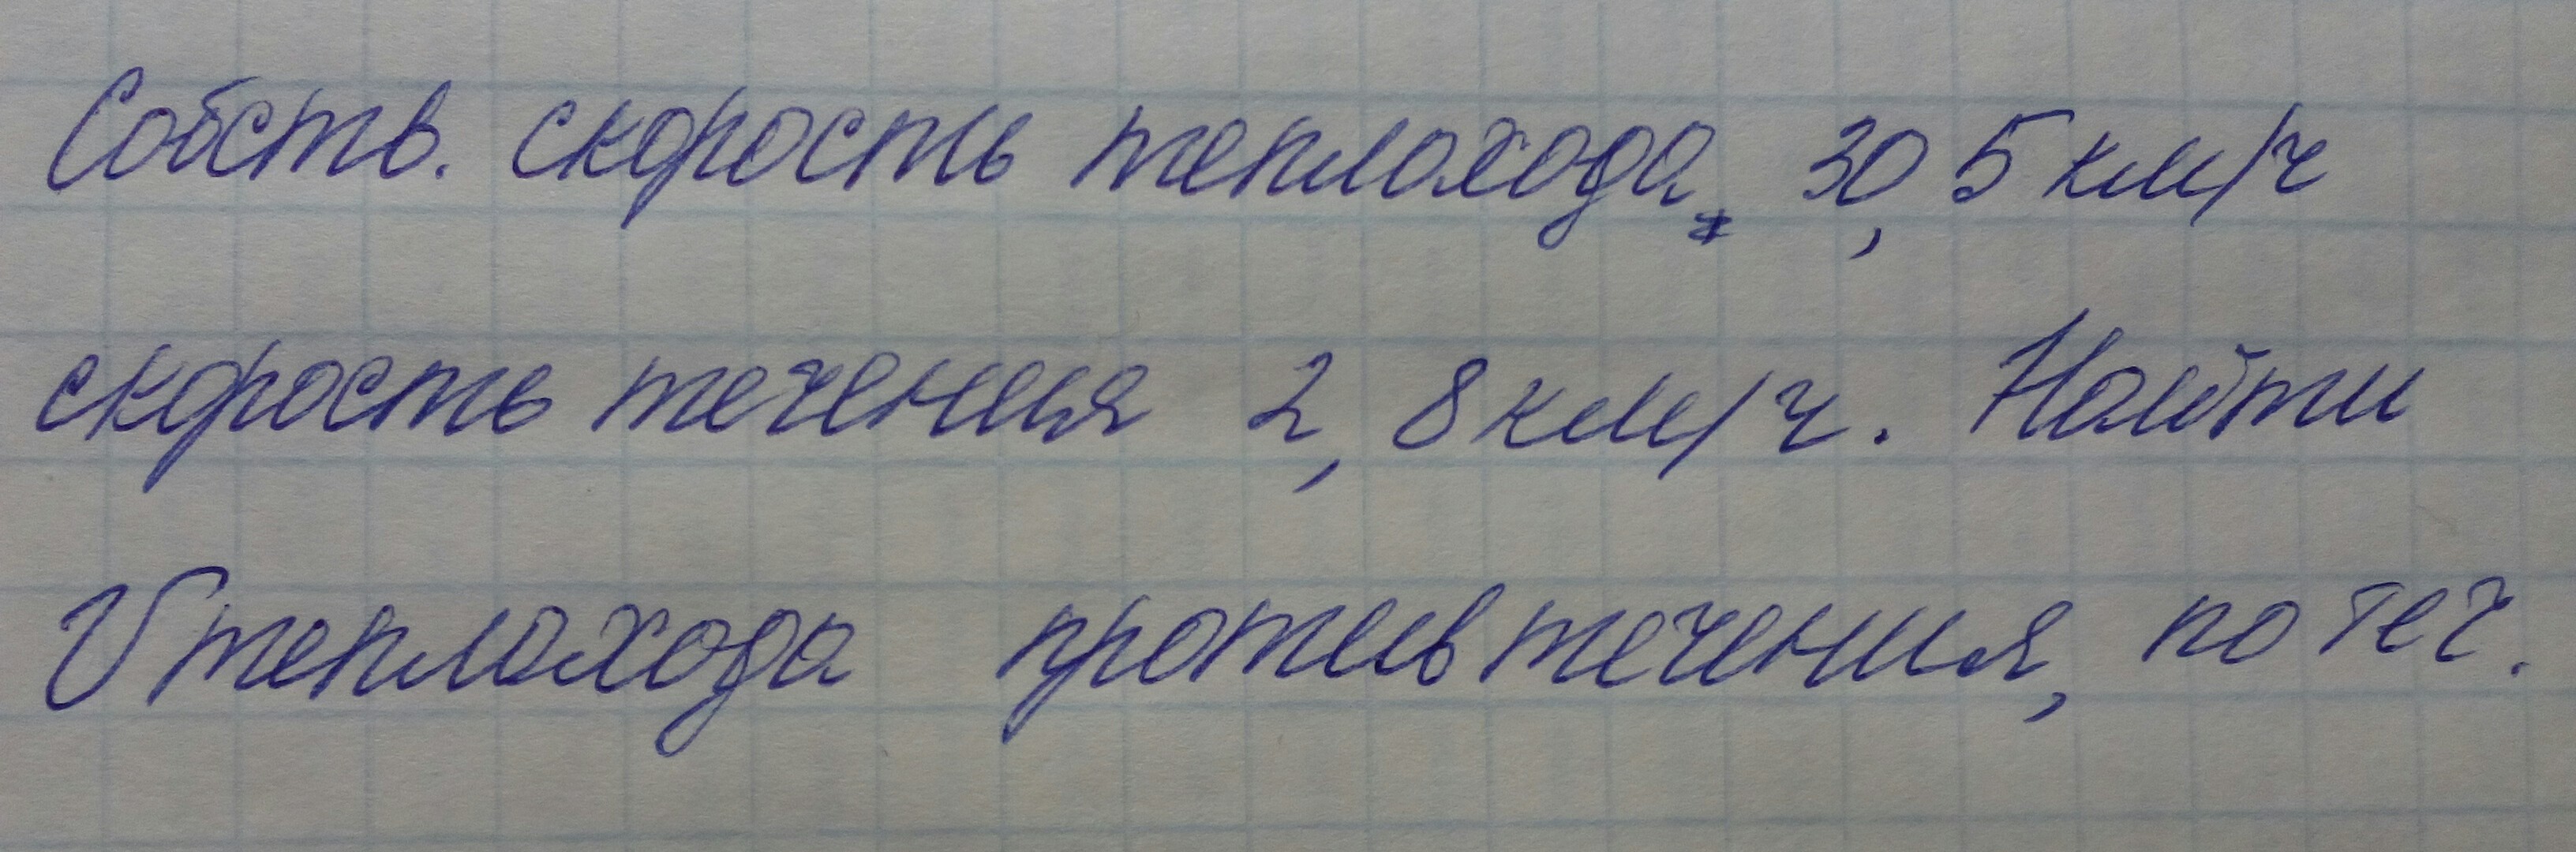 Собств. скорость теплохода 30,5 км/ч
скорость течения 2,8 км/ч. Найти
V теплохода против течения, по теч.